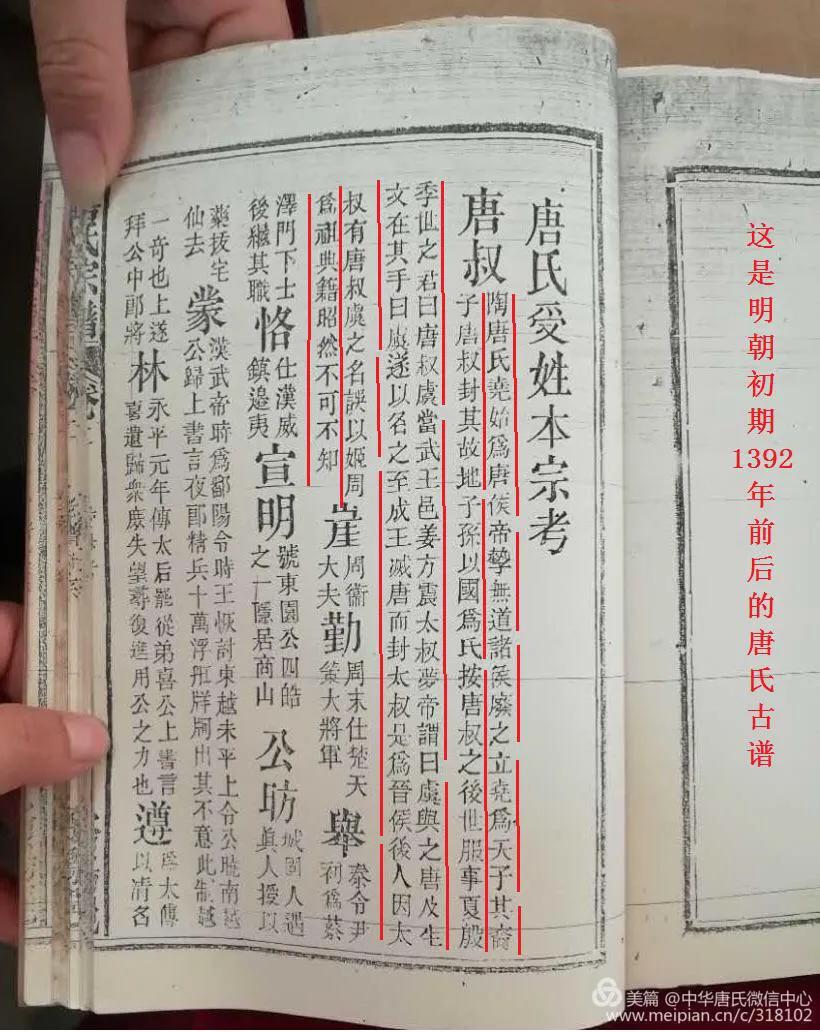 唐氏受姓本宗考
唐叔
陶唐氏堯始爲唐侯帝摯無道諸侯廢之立堯爲天子其裔
子唐叔封其故地子孫以國爲氏按唐叔之後世服事夏殷
季世之君曰唐叔虞當武王邑姜方震太叔夢帝謂曰虞與之唐及生
文在其手曰虞遂以名之至成王滅唐而封太叔是爲晉侯後人因太
叔有唐叔虞之名誤以姬周
爲祖典籍昭然不可不知
崖
周衞
大夫
勤
周末仕楚天
策大將軍
舉
秦令尹
初爲蔡
澤門下士
後繼其職
恪
仕漢威
鎮邉夷
宣明
號東園公四皓
之一隱居商山
公昉
城固人遇
眞人授以
藥技宅
仙去
蒙
漢武帝時爲鄱陽令時王恢討東越未平上令公曉南越
公歸上書言夜郎精兵十萬浮舡牂牁出其不意此制越
一奇也上遂
拜公中郎將
林
永平元年傳太后罷從弟喜公上書言
喜遺歸衆庶失望尋復進用公之力也
遵
爲太傅
以清名
氏宗譜
这是明朝初期1392年前后的唐氏古谱
美篇 @中华唐氏微信中心
www.meipian.cn/c/318102